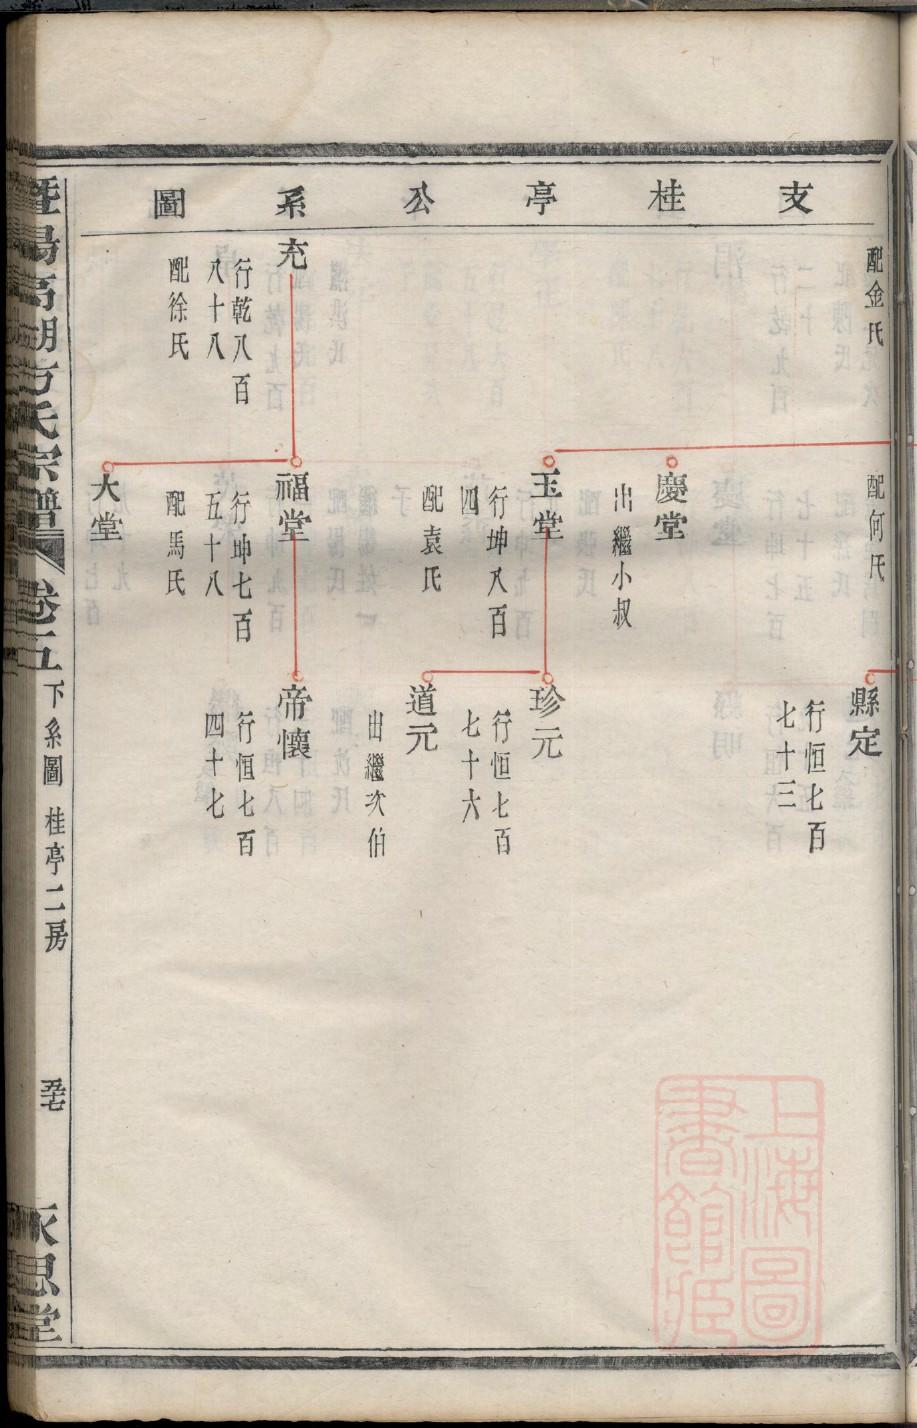 支桂亭公系圖
配金氏
充
行乾八百
八十八
配徐氏
配何氏
慶堂
出繼小叔
玉堂
行坤八百
四
配袁氏
福堂
行坤七百
五十八
配馬氏
大堂
縣定
行恒七百
七十三
珍元
行恒七百
七十六
道元
出繼次伯
帝懷
行恒七百
四十七
暨陽高湖方氏宗譜
卷五
下系圖
桂亭二房
永思堂
上海圖
書館藏